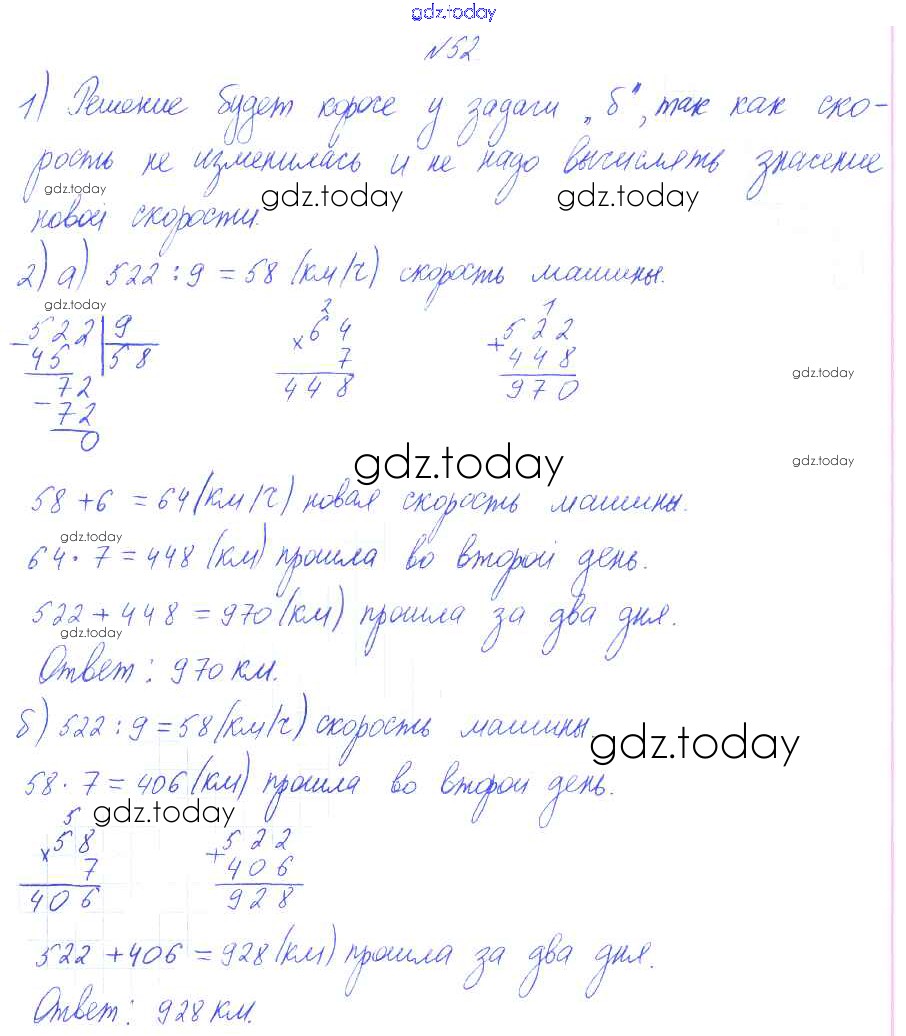 gdz.today
№52
1) Решение будет короче у задачи „б", так как ско-
рость не изменилась и не надо вычислять значение
gdz.today gdz.today gdz.today
новой скорости.
2) а) 522 : 9 = 58 (км/ч) скорость машины.
gdz.today
− 522 | 9
45 58
− 72
72
0
2
× 64
7
448
1
+ 522
448
970
gdz.today
gdz.today gdz.today
58 + 6 = 64 (км/ч) новая скорость машины.
gdz.today
64 · 7 = 448 (км) прошла во второй день.
522 + 448 = 970 (км) прошла за два дня.
gdz.today
Ответ: 970 км.
б) 522 : 9 = 58 (км/ч) скорость машины.
gdz.today
58 · 7 = 406 (км) прошла во второй день.
gdz.today
5
× 58
7
406
+ 522
406
928
522 + 406 = 928 (км) прошла за два дня.
Ответ: 928 км.